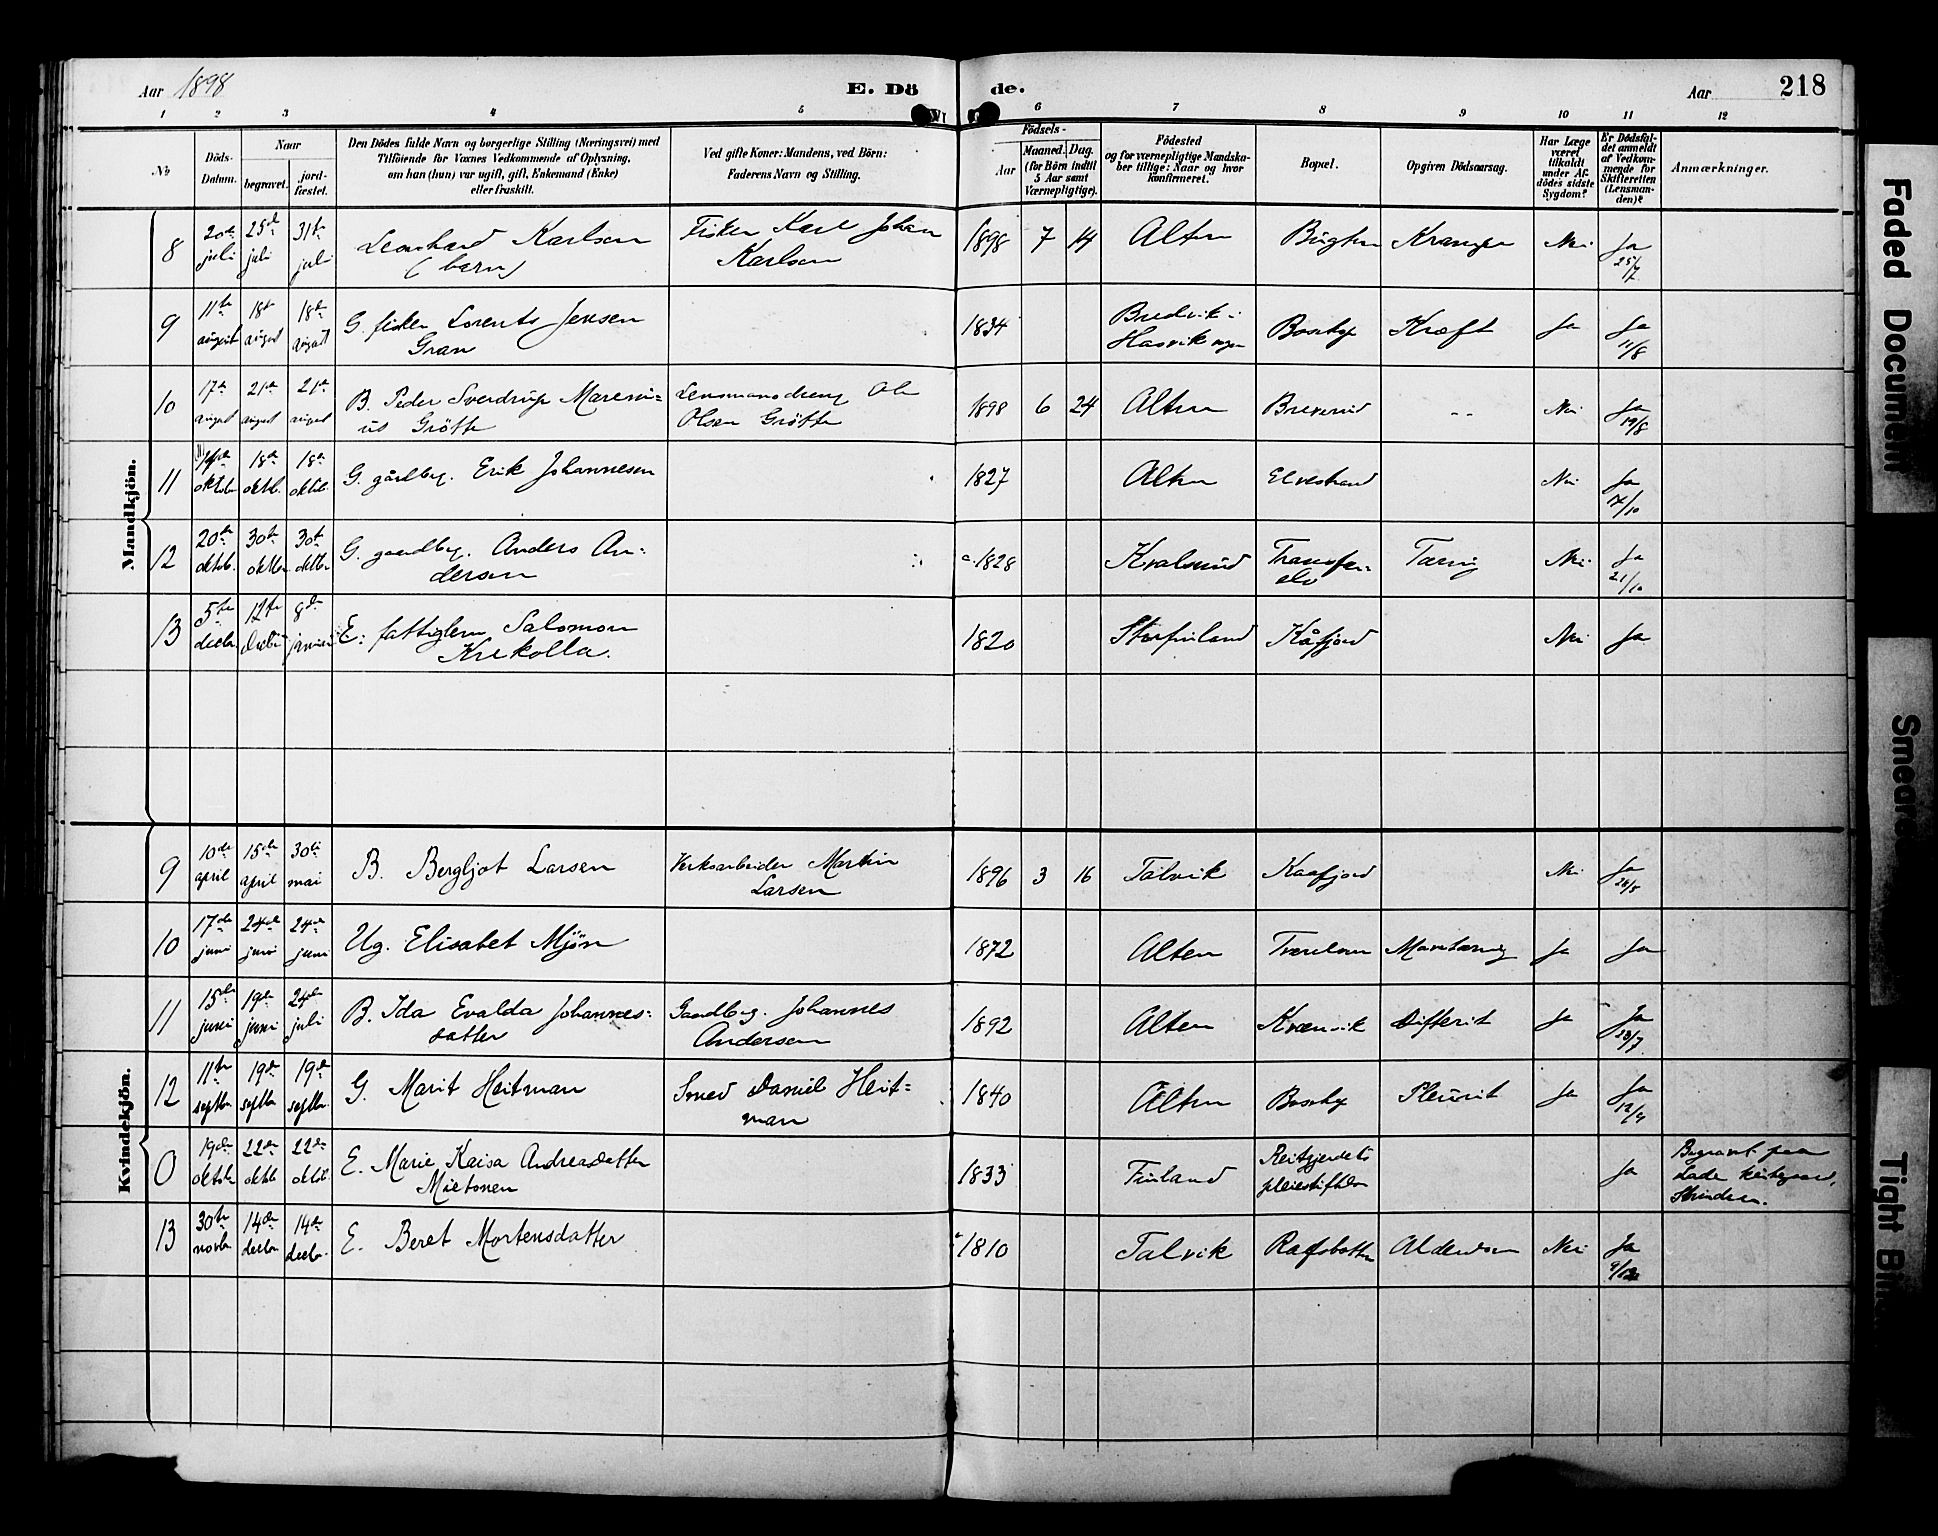 Aar 1898 E. Dö de. Aar 218
1 2 3 4 5 6 7 8 9 10 11 12
No Döds-Datum. Naar begravet. jord-fæstet. Den Dödes fulde Navn og borgerlige Stilling (Næringsvei) med Tilföiende for Voxnes Vedkommende af Oplysning, om han (hun) var ugift, gift, Enkemand (Enke) eller fraskilt. Ved gifte Koner: Mandens, ved Börn: Faderens Navn og Stilling. Födsels- Aar Maaned. Dag. (for Börn indtil 5 Aar samt Værnepligtige). Födested og for værnepligtige Mandskaber tillige: Naar og hvor konfirmeret. Bopæl. Opgiven Dödsaarsag. Har Læge været tilkaldt under Afdödes sidste Sygdom? Er Dödsfaldet anmeldt af Vedkommende for Skifteretten (Lensmanden)? Anmærkninger.
Mandkjön.
8 20de juli 25de juli 31te juli Leonhard Karlsen (barn) Fisker Karl Johan Karlsen 1898 7 14 Alten Bugten Krampe Nei Ja 25/7
9 11te august 18de august 18de august G. fisker Lorents Jensen Gran 1834 Bredvik i Hasvik sogn Bosekop Kræft Ja Ja 11/8
10 17de august 21de august 21de august B. Peder Sverdrup Marenius Grötte Lensmandsdreng Ole Olsen Grötte 1898 6 24 Alten Breverud -- Nei Ja 19/8
11 oktobr. 18de oktb. 18de oktb. G. gårdbrg. Erik Johannesen 1827 Alten Elvestrand Nei Ja 17/10
12 20de oktob. 30te oktbr. 30te oktbr. G. gaardbrg. Anders Andersen 1828 Kvalsund Tæring Nei Ja 21/10
13 5te decbr. 12te decbr. 8de januar E. fattiglem Salomon Krekolla. 1820 Storfinland Kåfjord Nei Ja
Kvindekjön.
9 10de april 15de april 30te mai B. Bergljot Larsen Verksarbeider Martin Larsen 1896 3 16 Talvik Kaafjord Nei Ja 26/5
10 17de juni 24de juni 24de juni Ug. Elisabet Mjön 1872 Alten Tverelven Ja Ja
11 15de juni 19de juni 24de juli B. Ida Evalda Johannesdatter Gaardbrg. Johannes Andersen 1892 Alten Kvænvik Difterit Ja Ja
12 11te septbr. 19de septbr. 19de septbr. G. Marit Heitman Smed Daniel Heitman 1840 Alten Bosekop Pleurit Ja Ja 12/9
0 19de oktobr 22de oktob 22de oktob. E. Marie Kaisa Andreasdatter Mietonen 1833 Finland Reitgjerdets pleiestiftelse Ja Begravet paa Lade kirkegaard, Strinden.
13 30te novbr 14de decbr 14de decbr. E. Beret Mortensdatter 1810 Talvik Rafsbotten Alderdom Nei Ja 9/12
Faded Document
Smeare
Tight Bi